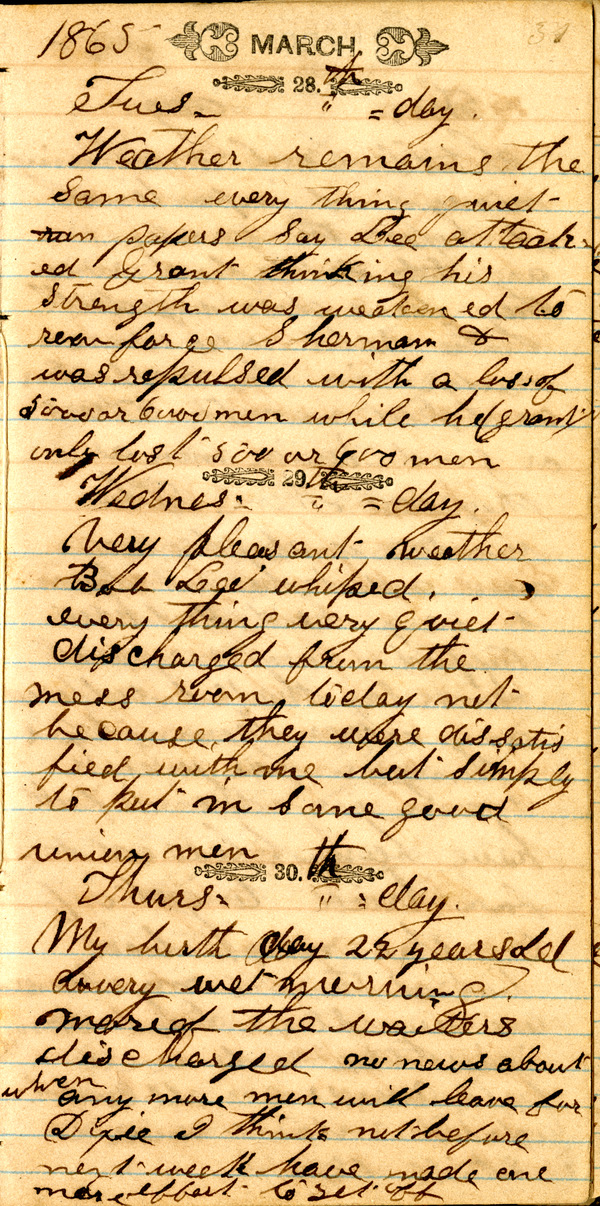 1865 MARCH. 31
28.th
Tues = " = day.
Weather remains the
same every thing quiet
papers say Lee attack=
ed Grant thinking his
strength was weakened to
reenforce Sherman &
was repulsed with a loss of
5000 or 6000 men while he (grant
only lost 500 or 600 men
29th
Wednes = " = day.
Very pleasant weather
Bob Lee whiped.
every thing very quiet
discharged from the
mess room today not
because they were dissatis
fied with me but simply
to put in some good
union men
30.th
Thurs = " = day.
My birth day 22 years old
a very wet morning
more of the waiters
discharged no news about
when
any more men will leave for
Dixie I think not before
next week have made one
more effort to get off